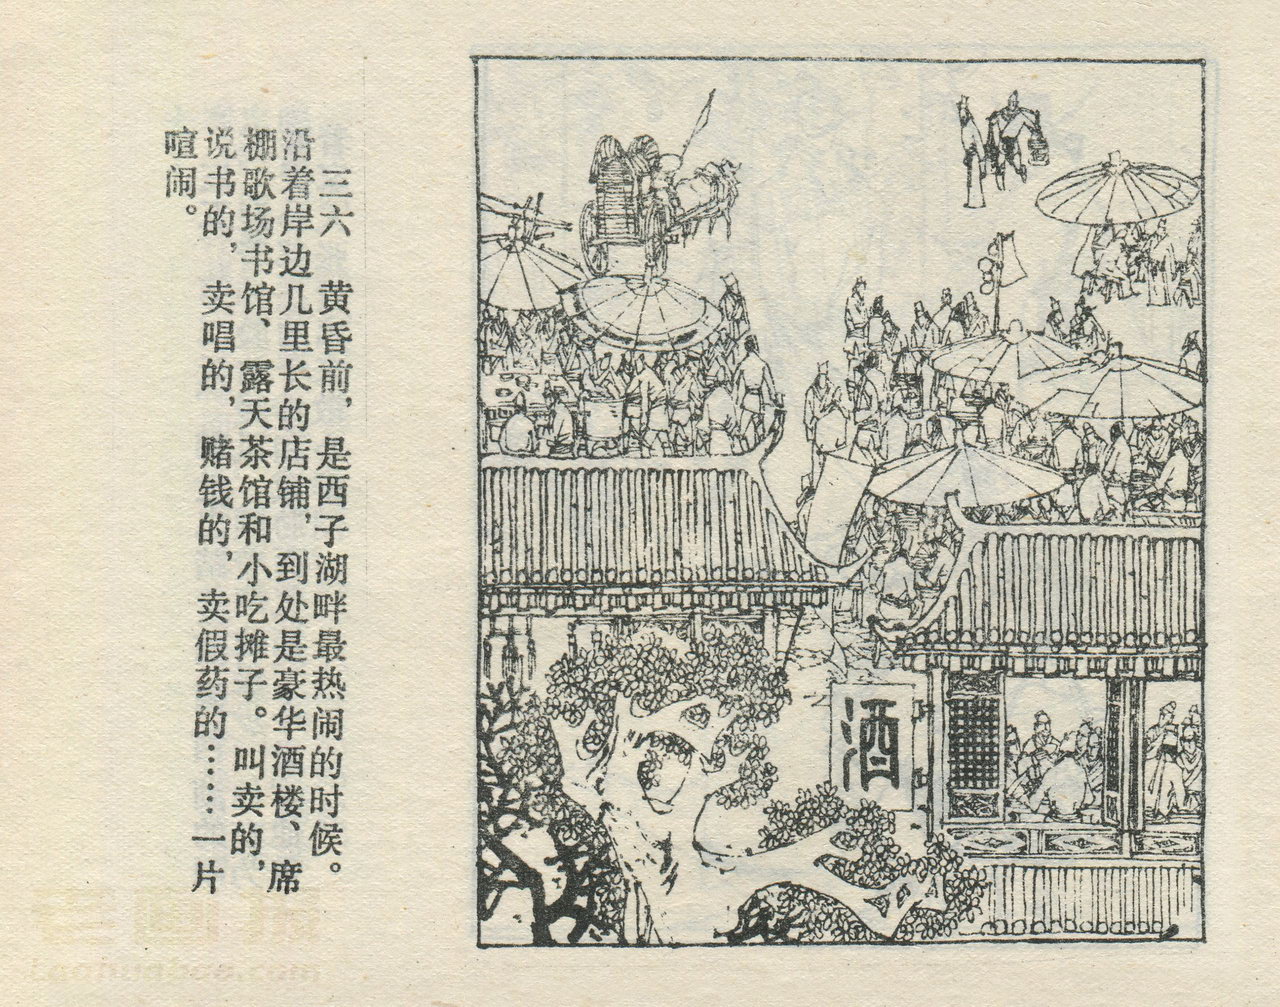 三六　黄昏前，是西子湖畔最热闹的时候。
沿着岸边几里长的店铺，到处是豪华酒楼、席
棚歌场书馆、露天茶馆和小吃摊子。叫卖的，
说书的，卖唱的，赌钱的，卖假药的……一片
喧闹。
酒